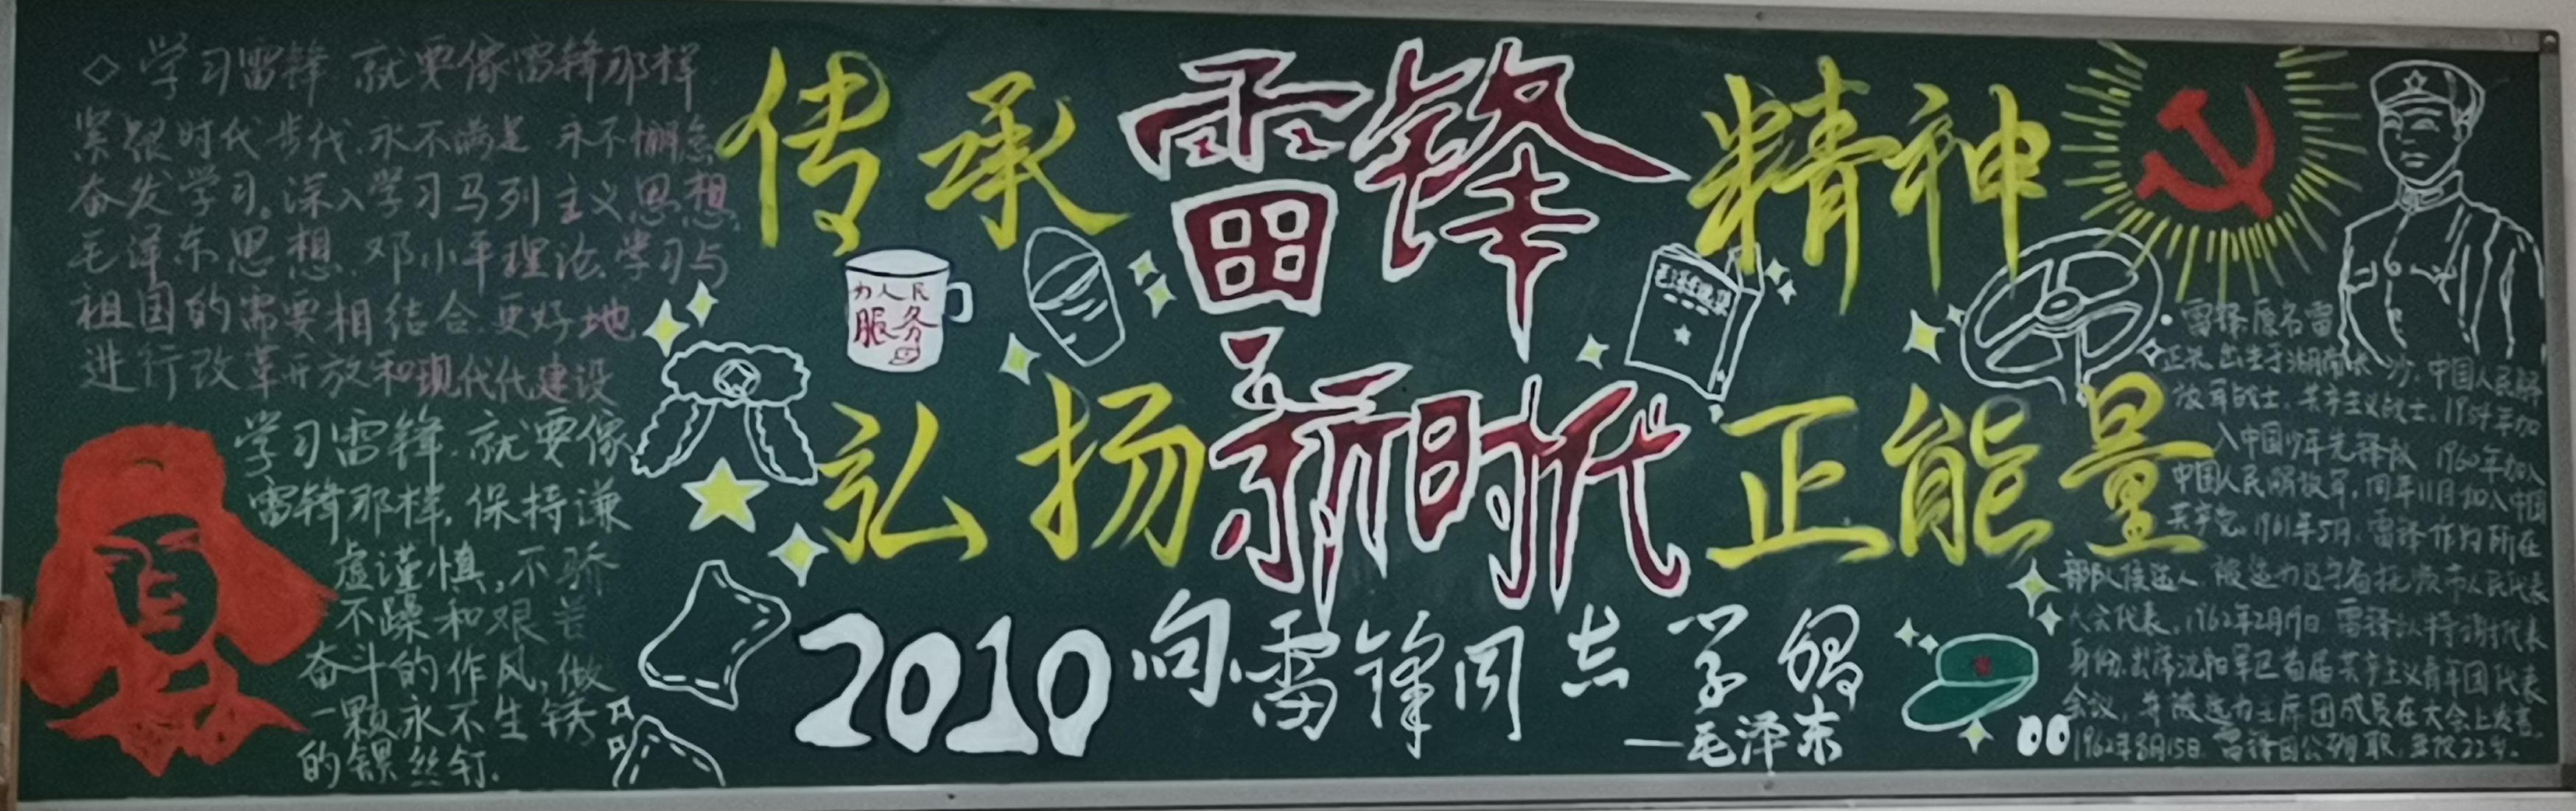 ◇学习雷锋 就要像雷锋那样
紧跟时代步代.永不满足 永不懈怠
奋发学习。深入学习马列主义思想,
毛泽东思想.邓小平理论.学习与
祖国的需要相结合.更好地
进行改革开放和现代代建设
学习雷锋.就要像
雷锋那样,保持谦
虚谨慎,不骄
不躁和艰苦
奋斗的作风,做
一颗永不生锈
的螺丝钉.
传承雷锋精神
为人民
服务
弘扬新时代正能量
2010
向雷锋同志学习
—毛泽东
·雷锋原名雷
正兴,出生于湖南长沙,中国人民解
放军战士.共产主义战士,1954年加
入中国少年先锋队 1960年加入
中国人民解放军,同年11月加入中国
共产党。1961年5月,雷锋作为所在
部队候选人 被选为辽宁省抚顺市人民代表
大会代表,1962年2月19日 雷锋以特邀代表
身份.出席沈阳军区首届共产主义青年团代表
会议,并被选为主席团成员在大会上发言.
1962年8月15日.雷锋因公殉职,年仅22岁.